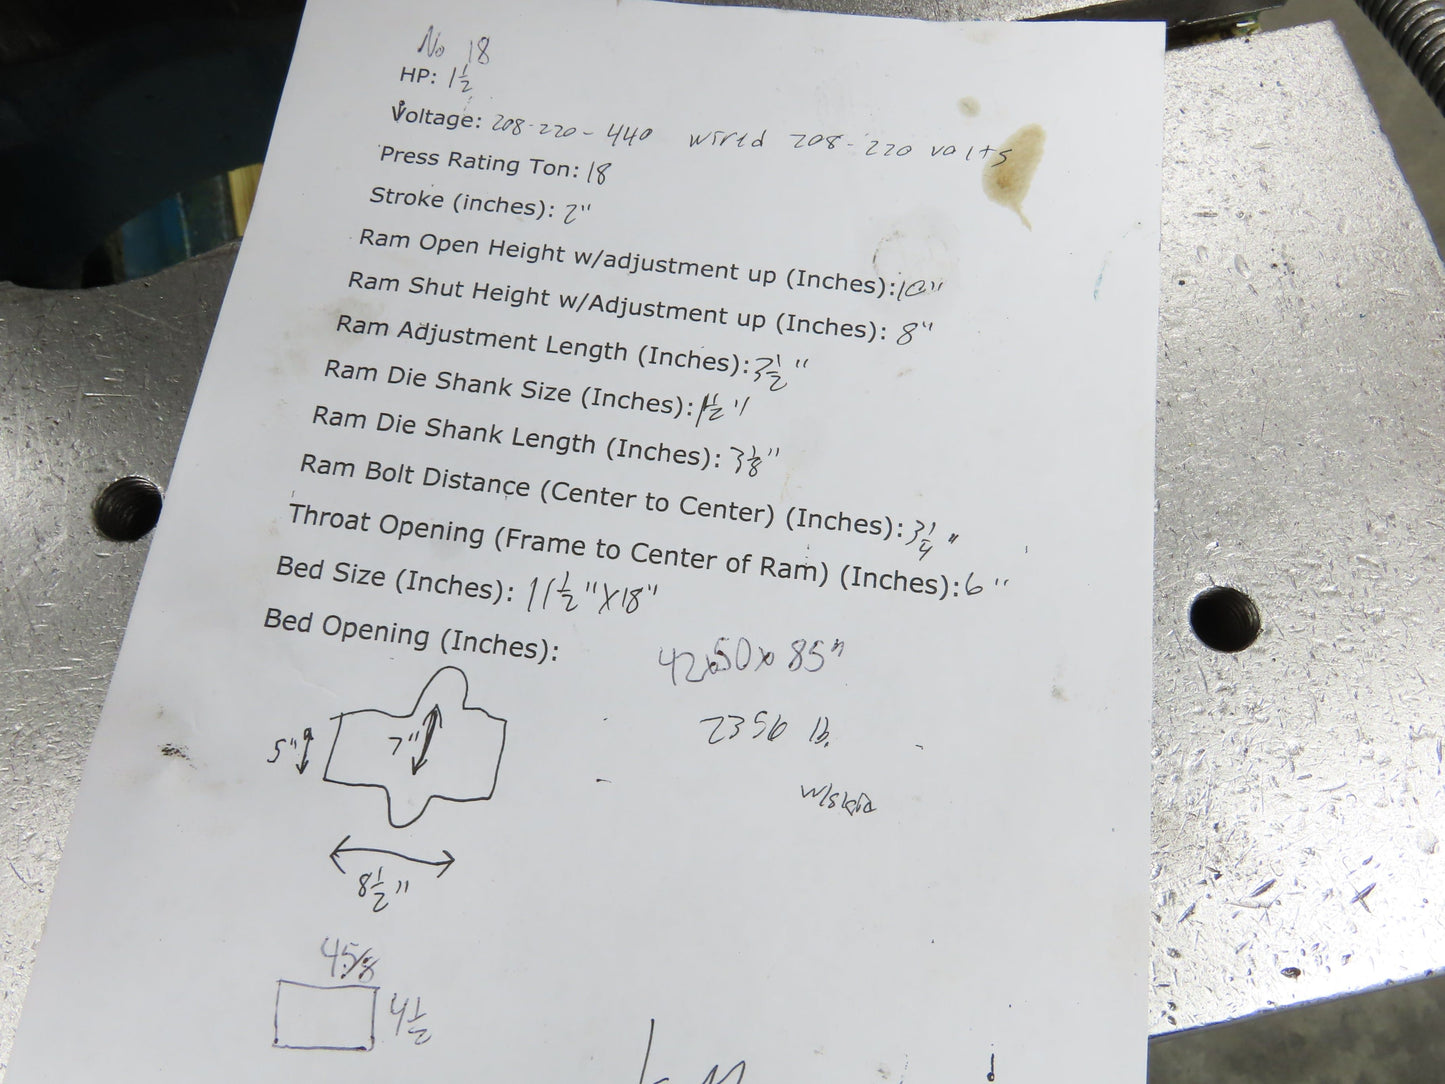 No 18
HP: 1 1/2
Voltage: 208-220-440 wired 208-220 volts
Press Rating Ton: 18
Stroke (inches): 2"
Ram Open Height w/adjustment up (Inches): 10"
Ram Shut Height w/Adjustment up (Inches): 8"
Ram Adjustment Length (Inches):
Ram Die Shank Size (Inches): 1 1/2"
Ram Die Shank Length (Inches): 3 1/8"
Ram Bolt Distance (Center to Center) (Inches): 3 1/4"
Throat Opening (Frame to Center of Ram) (Inches): 6"
Bed Size (Inches): 11 1/2" X 18"
Bed Opening (Inches):
42x50x85"
2356 lb.
w/skid
5"
7"
8 1/2"
4 5/8
4 1/2